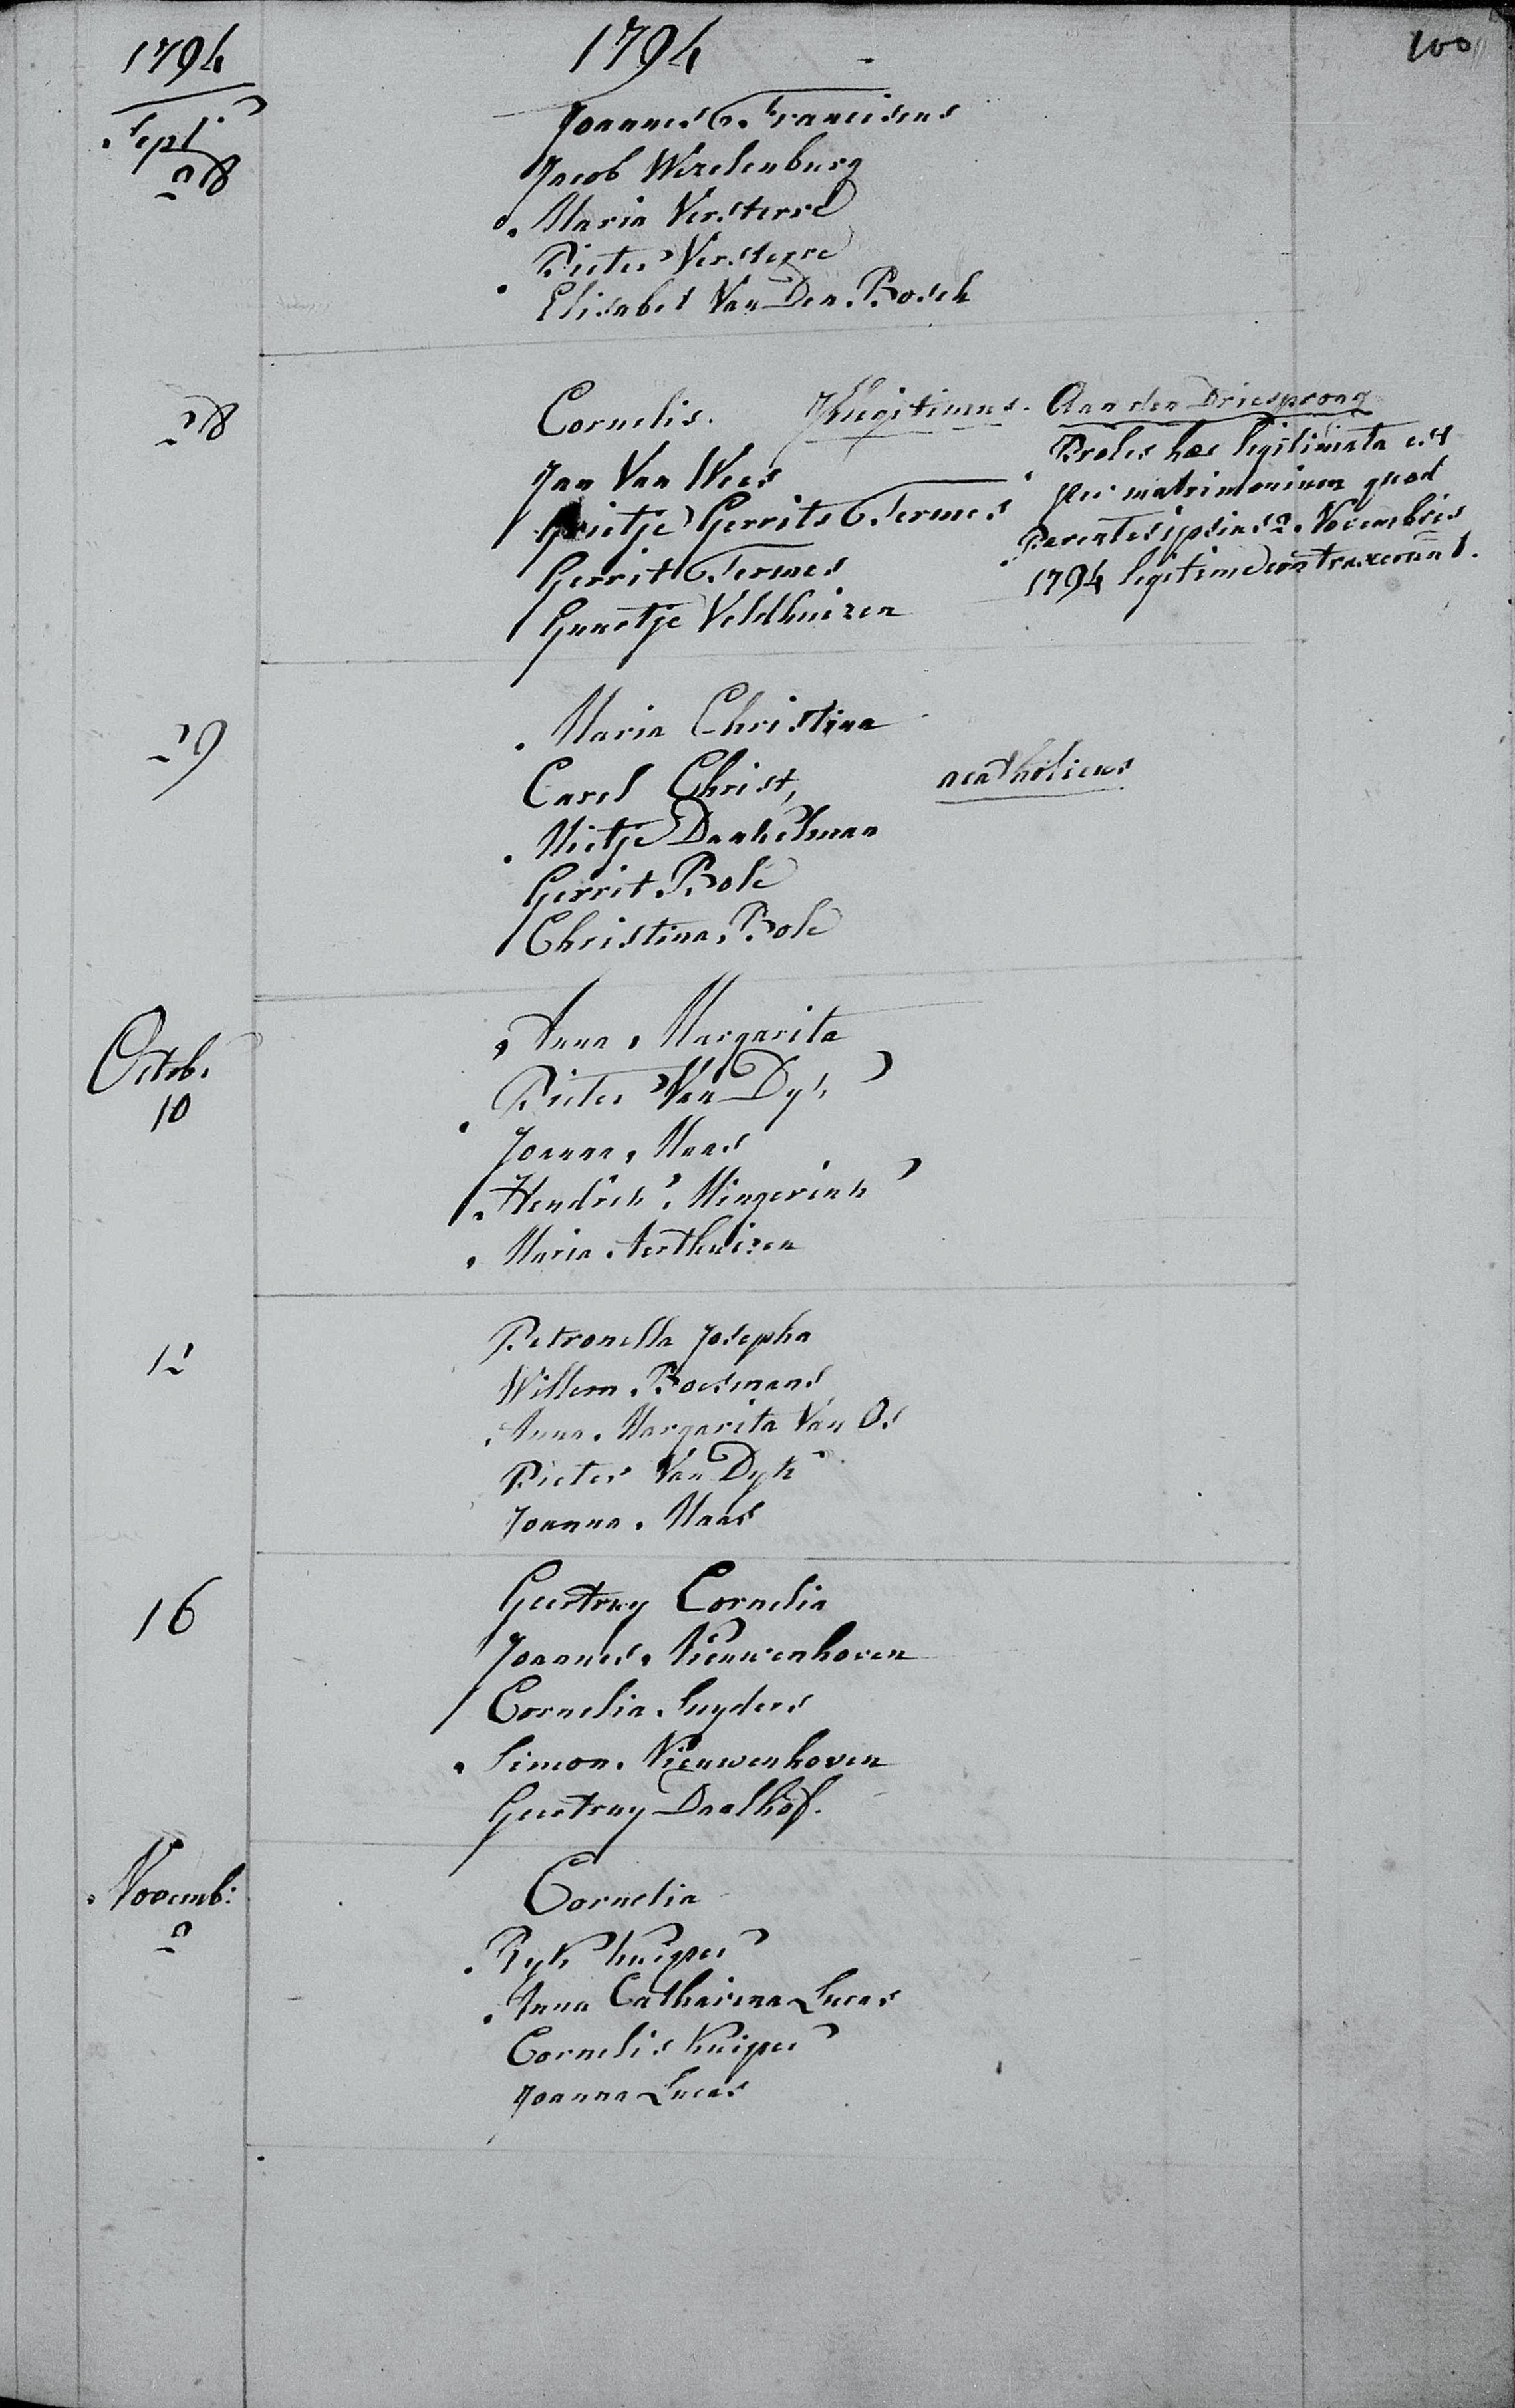 1794
1794
100
Sept
28
Joannes Franciscus
Jacob Werelenburg
Maria Versterre
Pieter Versterre
Elisabet Van Den Bosch
28
Cornelis. Illegitimus. Aan den Driesprong
Jan Van Wees
Grietje Gerrits Termes
Gerrit Termes
Guurtje Veldhuizen
Proles hæc legitimata est
per matrimonium quod
Parentes ipsius 2. Novembris
1794 legitime contraxerunt.
29
Maria Christina
Carel Christ, acatholicus
Mietje Dankelman
Gerrit Bole
Christina Bole
Octob.
10
Anna Margarita
Pieter Van Dyk
Joanna Maas
Hendrik Mingerink
Maria Aerthuizen
12
Petronella Josepha
Willem Boesmans
Anna Margarita Van Os
Pieter Van Dyk
Joanna Maas
16
Geertruy Cornelia
Joannes Nieuwenhoven
Cornelia Snyders
Simon Nieuwenhoven
Geertruy Daalhof.
Novemb:
2
Cornelia
Ryk Kuiper
Anna Catharina Lucas
Cornelis Kuiper
Joanna Lucas